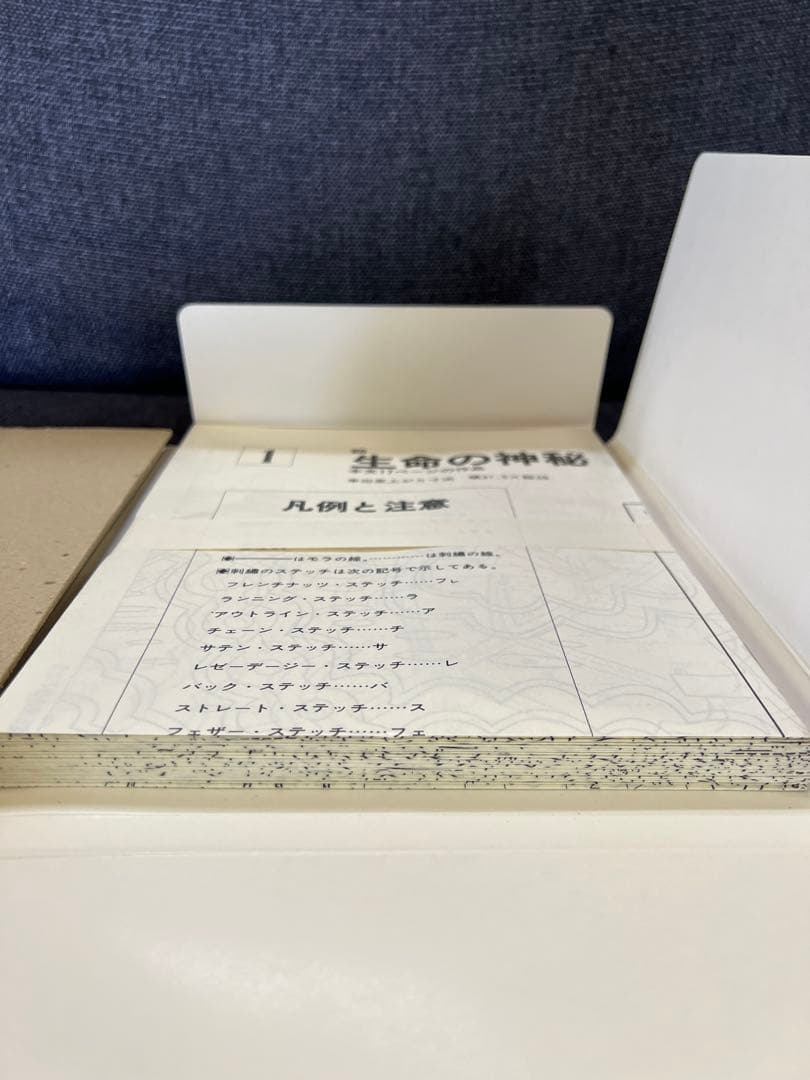 1
生命の神秘
本文17ページの作品
凡例と注意
はモラの線。…………は刺繍の線。
刺繍のステッチは次の記号で示してある。
フレンチナッツ・ステッチ……フレ
ランニング・ステッチ……ラ
アウトライン・ステッチ……ア
チェーン・ステッチ……チ
サテン・ステッチ……サ
レゼーデージー・ステッチ……レ
バック・ステッチ……バ
ストレート・ステッチ……ス
フェザー・ステッチ……フェ